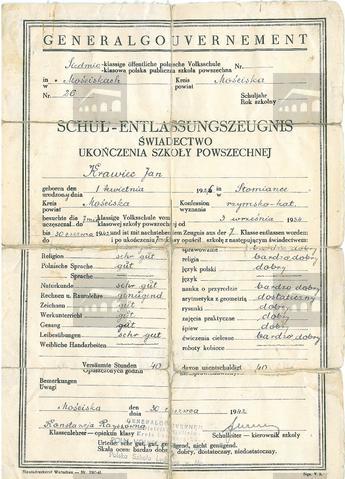 GENERALGOUVERNEMENT
Siedmio-klassige öffentliche polnische Volksschule Nr.
klasowa polska publiczna szkoła powszechna
in w Mościskach Kreis powiat Mościska
Nr. 26 Schuljahr Rok szkolny
SCHUL-ENTLASSUNGSZEUGNIS
ŚWIADECTWO
UKOŃCZENIA SZKOŁY POWSZECHNEJ
Krawiec Jan
geboren den urodzony dnia 1 kwietnia in w
Kreis powiat Mościska Konfession wyznania rzymsko-kat.
besuchte die klassige Volksschule vom 3 września
uczęszczał do klasowej szkoły powszechnej od
bis do 30 czerwca 1942 und ist mit nachstehendem Zeugnis aus der 7 Klasse entlassen worden:
i po ukończeniu klasy opuścił szkołę z następującym świadectwem:
sprawowanie bardzo dobry
Religion sehr gut religia bardzo dobry
Polnische Sprache gut język polski dobry
Naturkunde sehr gut nauka o przyrodzie bardzo dobry
Rechnen u. Raumlehre genügend arytmetyka z geometrią dostateczny
Zeichnen gut rysunki dobry
Werkunterricht gut zajęcia praktyczne dobry
Gesang gut śpiew dobry
Leibesübungen sehr gut ćwiczenia cielesne bardzo dobry
Weibliche Handarbeiten roboty kobiece
Versäumte Stunden 40 davon unentschuldigt 40
Opuszczonych godzin
Bemerkungen
Uwagi
Mościska den dnia 30 czerwca 1942
GENERALGOUVERNEMENT
Klassenlehrer — opiekun klasy Schulleiter — kierownik szkoły
Urteile: sehr gut, gut, genügend, nicht genügend.
Skala ocen: bardzo dobry, dobry, dostateczny, niedostateczny.